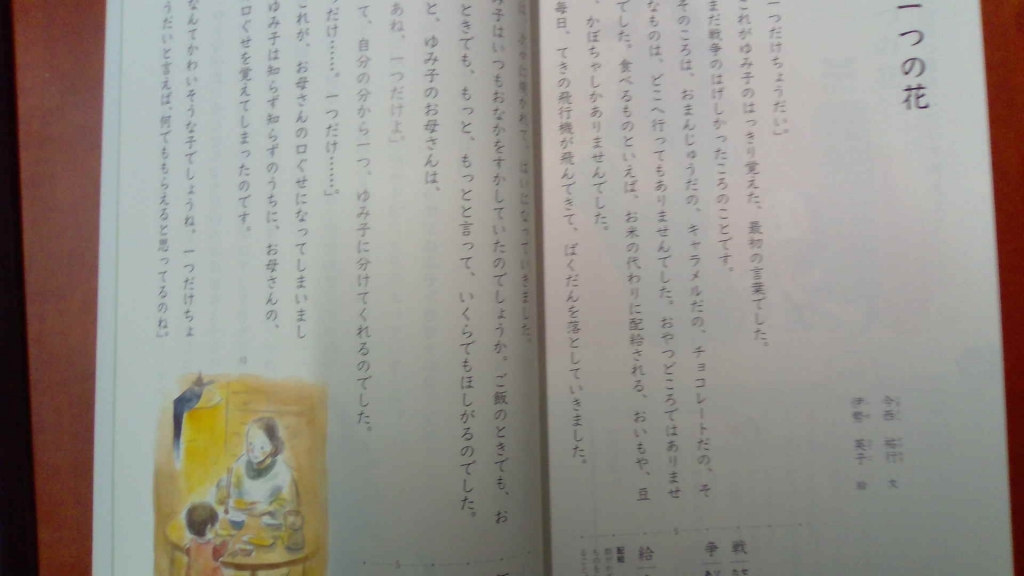 一つの花
今西 祐行 文
伊勢 英子 絵
一つだけちょうだい」
これがゆみ子のはっきり覚えた、最初の言葉でした。
まだ戦争のはげしかったころのことです。
そのころは、おまんじゅうだの、キャラメルだの、チョコレートだの、そ
なものは、どこへ行ってもありませんでした。おやつどころではありませ
でした。食べるものといえば、お米の代わりに配給される、おいもや、豆
、かぼちゃしかありませんでした。
毎日、てきの飛行機が飛んできて、ばくだんを落としていきました。
はいになっていきました。
み子はいつもおなかをすかしていたのでしょうか。ご飯のときでも、お
ときでも、もっと、もっとと言って、いくらでもほしがるのでした。
と、ゆみ子のお母さんは、
あね、一つだけよ」
て、自分の分から一つ、ゆみ子に分けてくれるのでした。
だけ……。一つだけ……」
これが、お母さんの口ぐせになってしまいまし
ゆみ子は知らず知らずのうちに、お母さんの、
口ぐせを覚えてしまったのです。
なんてかわいそうな子でしょうね。一つだけちょ
うだいと言えば、何でももらえると思ってるのね」
戦
争
給
配給